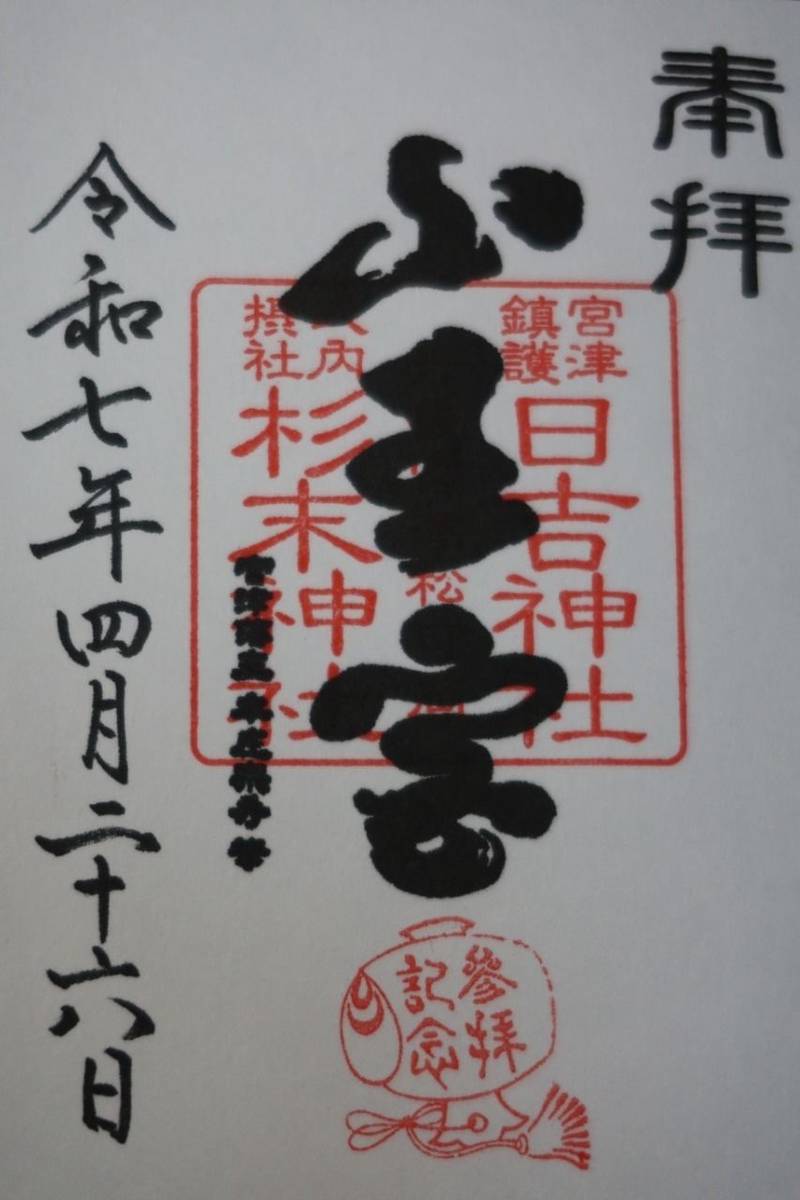 奉拝
山王宮
宮津
鎮護
日吉神社
松
内
摂社
杉末神社
令和七年四月二十六日
參拝
記念